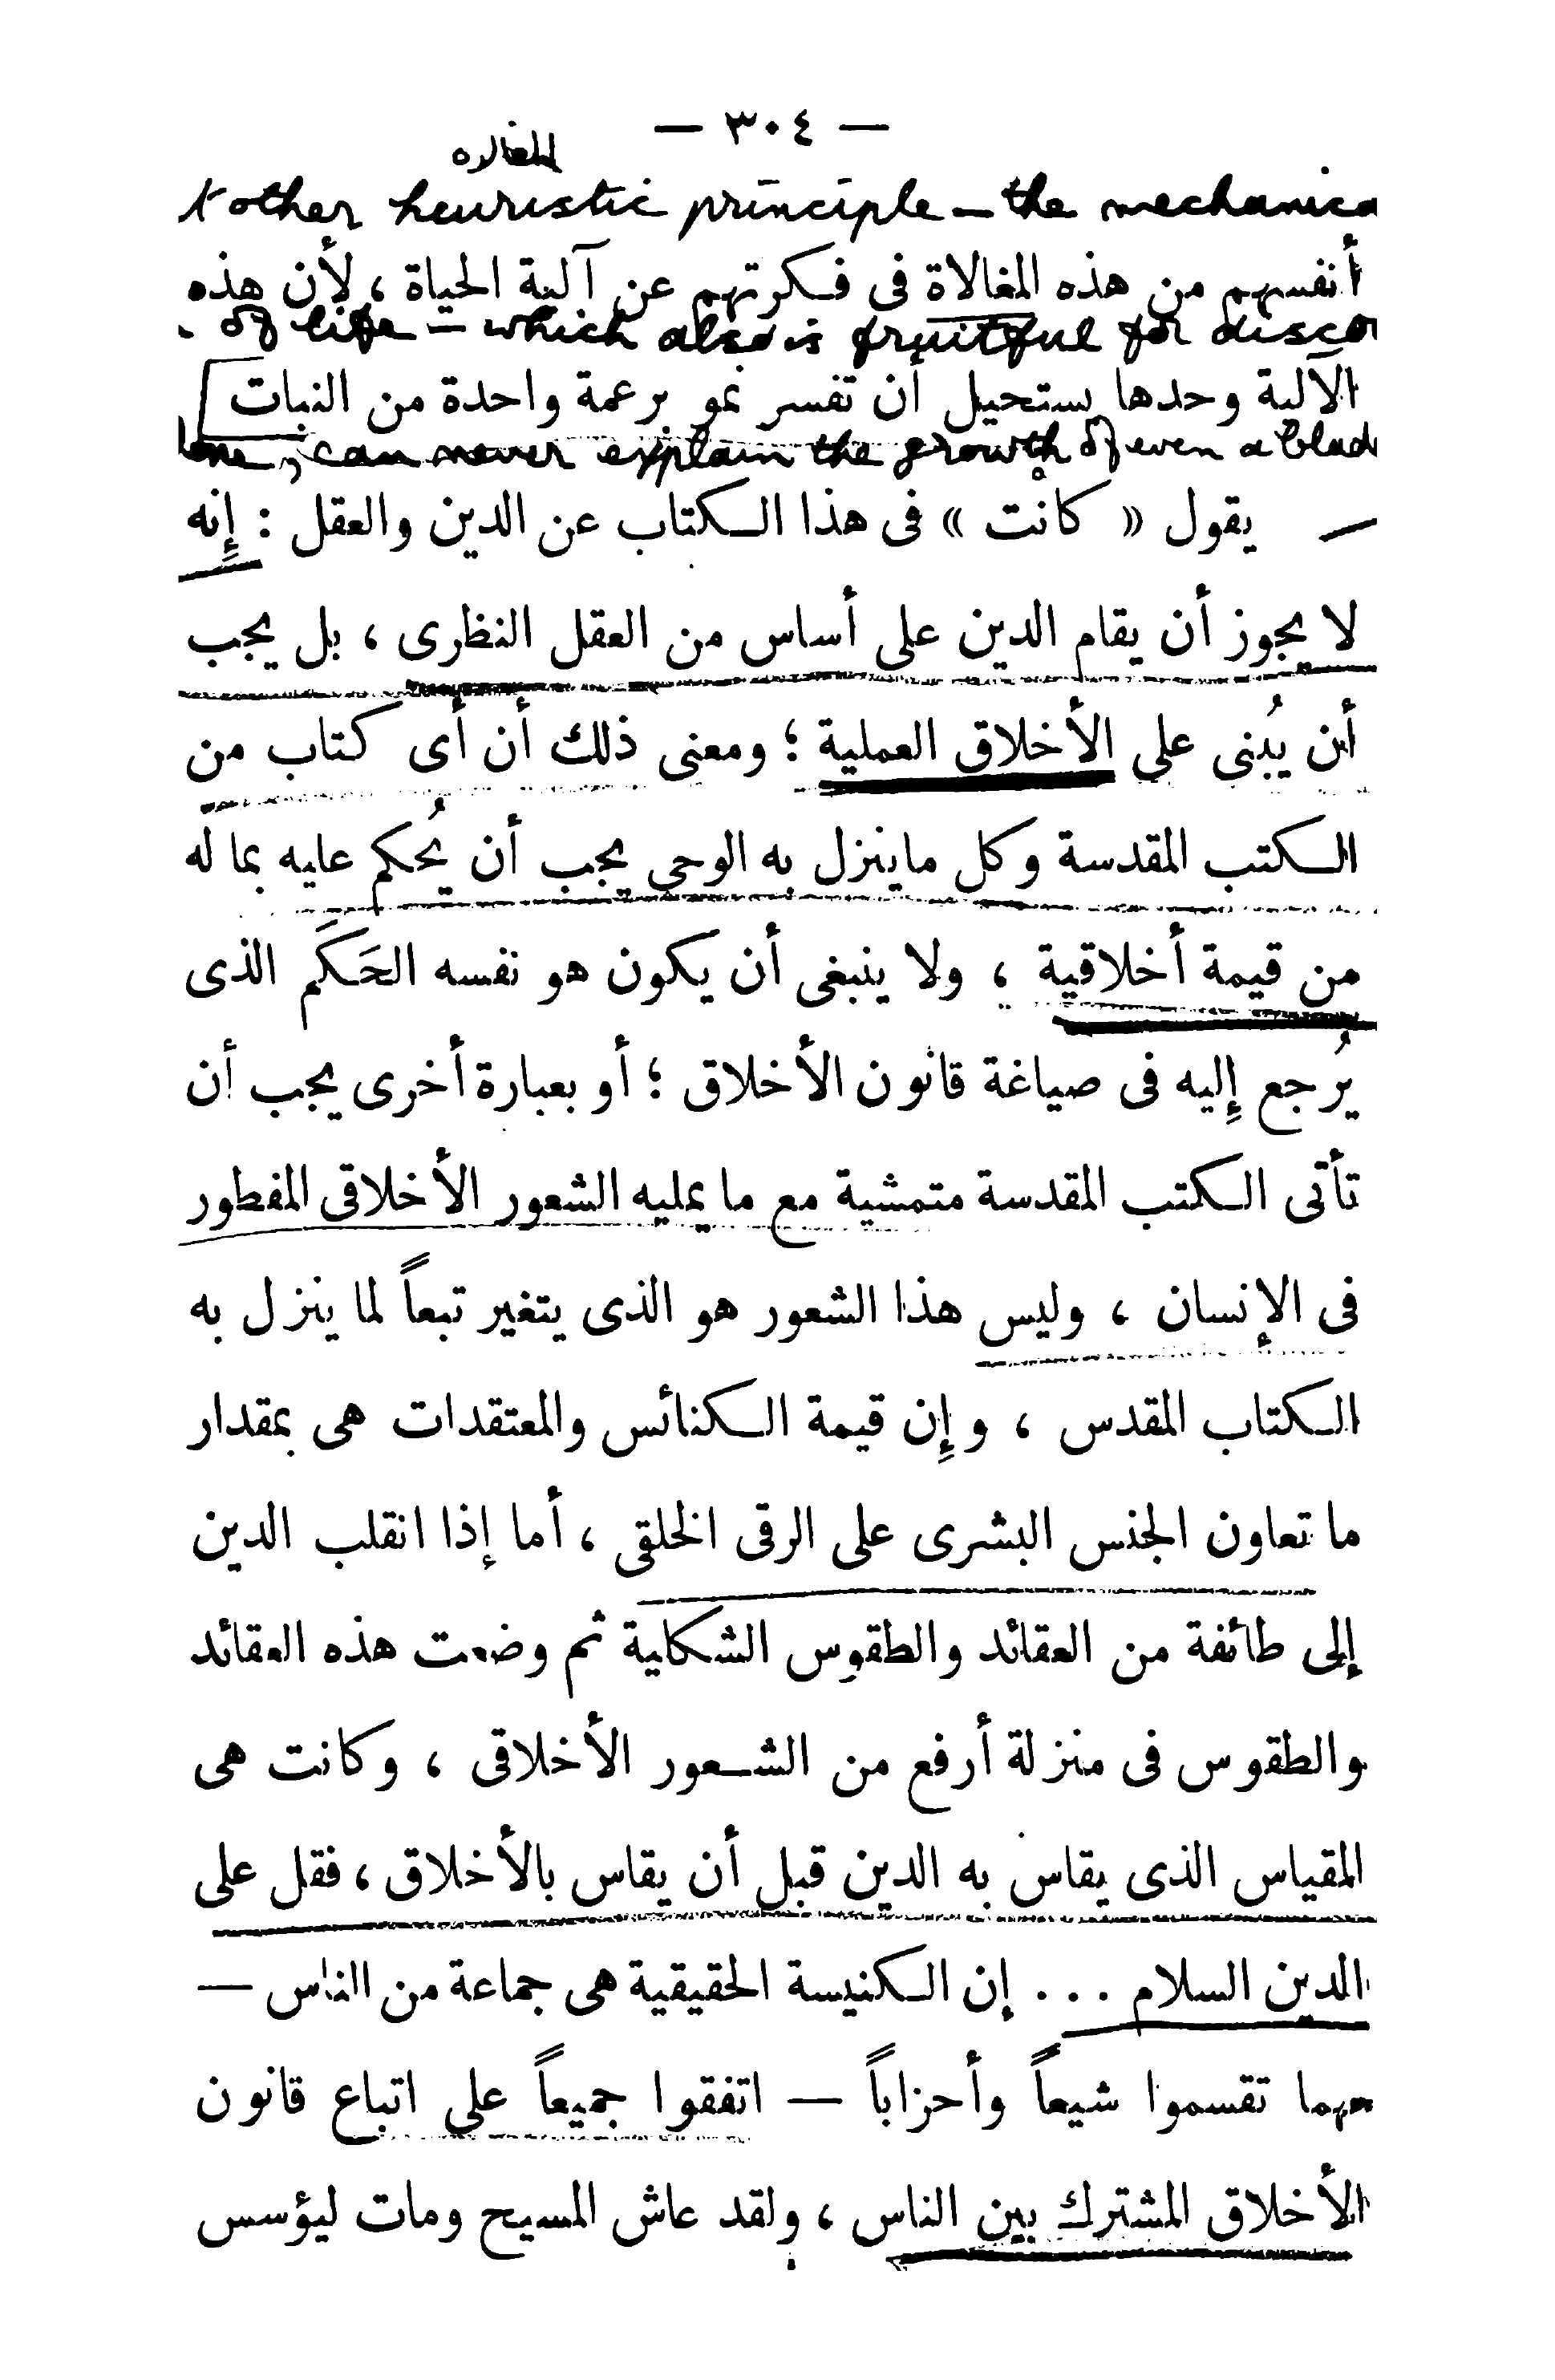 — ٣٠٤ —
other heuristic principle — the mechanica
أنفسهم من هذه المغالاة فى فكرتهم عن آلية الحياة ، لأن هذه
of life — which also is fruitful for disco
الآلية وحدها يستحيل أن تفسر نمو برعمة واحدة من النبات
lone, can never explain the growth of even a blad
— يقول « كانت » فى هذا الكتاب عن الدين والعقل : إِنه
لا يجوز أن يقام الدين على أساس من العقل النظرى ، بل يجب
أن يُبنى على الأخلاق العملية ؛ ومعنى ذلك أن أى كتاب من
الكتب المقدسة وكل ماينزل به الوحى يجب أن يُحكم عليه بما له
من قيمة أخلاقية ، ولا ينبغى أن يكون هو نفسه الحَكَم الذى
يُرجع إِليه فى صياغة قانون الأخلاق ؛ أو بعبارة أخرى يجب أن
تأتى الكتب المقدسة متمشية مع ما يمليه الشعور الأخلاقى المفطور
فى الإنسان ، وليس هذا الشعور هو الذى يتغير تبعاً لما ينزل به
الكتاب المقدس ، وإِن قيمة الكنائس والمعتقدات هى بمقدار
ما تعاون الجنس البشرى على الرقى الخلقى ، أما إذا انقلب الدين
إلى طائفة من العقائد والطقوس الشكلية ثم وضعت هذه العقائد
والطقوس فى منزلة أرفع من الشعور الأخلاقى ، وكانت هى
المقياس الذى يقاس به الدين قبل أن يقاس بالأخلاق ، فقل على
الدين السلام . . . إن الكنيسة الحقيقية هى جماعة من الناس —
مهما تقسموا شيعاً وأحزاباً — اتفقوا جميعاً على اتباع قانون
الأخلاق المشترك بين الناس ، ولقد عاش المسيح ومات ليؤسس